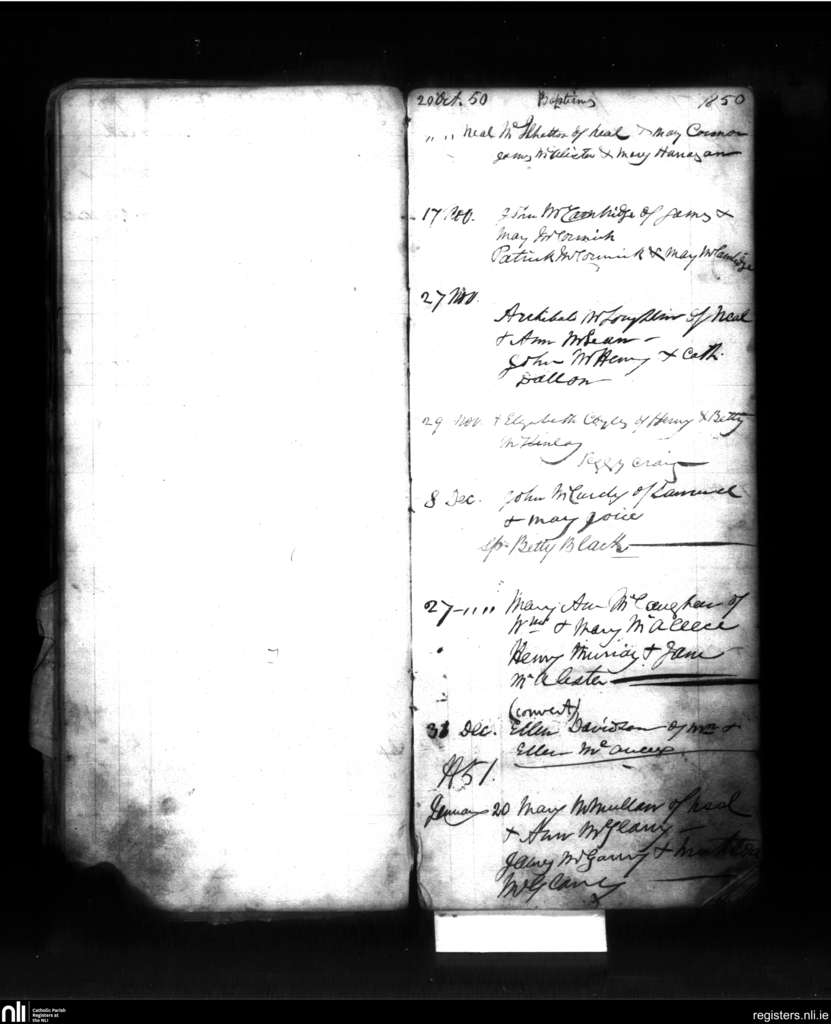 20 Oct. 50 Baptisms 1850
,, ,, Neal Mc of Neal & May Connor
James McAlister & Mary Harragan
17 Nov. John McCambridge of James &
May McCormick
Patrick McCormick & May McCambridge
27 Nov.
Archibald McLoughlin of Neal
& Ann McLean -
John McHenry & Cath.
Dallon
29 Nov. + Elizabeth Coyles of Henry & Betty
McKinley
Peggy Craig
8 Dec. John McCurdy of Samuel
& May Joice
Sp. Betty Black
27 - ,, ,, Mary Ann McCaughan of
Wm & Mary McAleece
Henry Murray & Jane
McAlester
(convert)
31 Dec. Ellen Davidson of Wm &
Ellen
1851.
January 20 Mary McMullan of Neal
& Ann McGlany
McGarry &
McGlaney
nli
Catholic Parish
Registers at
the NLI
registers.nli.ie